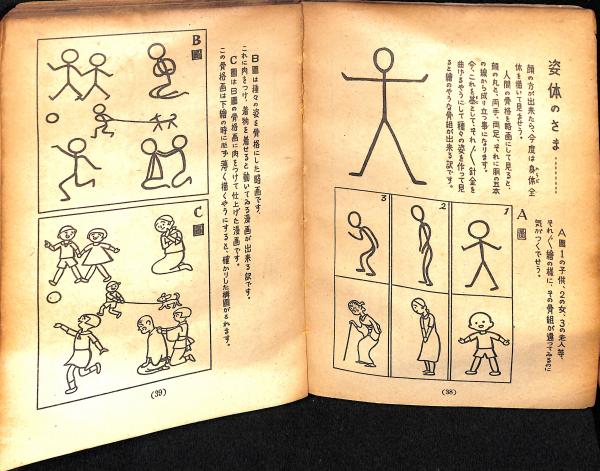 姿体のさま………
顔の方が出来たら、今度は身体全
体を描いて見ませう。
人間の骨格を略画にして見ると、
顔の丸と、両手、両足、それに胴の五本
の線から成り立つ事になります。
今、これを基として、それ〴〵針金を
曲げるやうにして種々の姿を作って見
ると繪のやうな骨組が出来る訳です。
A圖
A圖1の子供、2の女、3の老人等、
それ〴〵繪の様に、その骨組が違ってゐるのに
気がつくでせう。
1
2
3
(38)
B圖
B圖は種々の姿を骨格にした略画です。
これに肉をつけ、着物を着せると動いてゐる漫画が出来る訳です。
C圖はB圖の骨格画に肉をつけて仕上げた漫画です。
この骨格画は下繪の時に必ず薄く描くやうにすると、確かりした構圖がとれます。
C圖
(39)